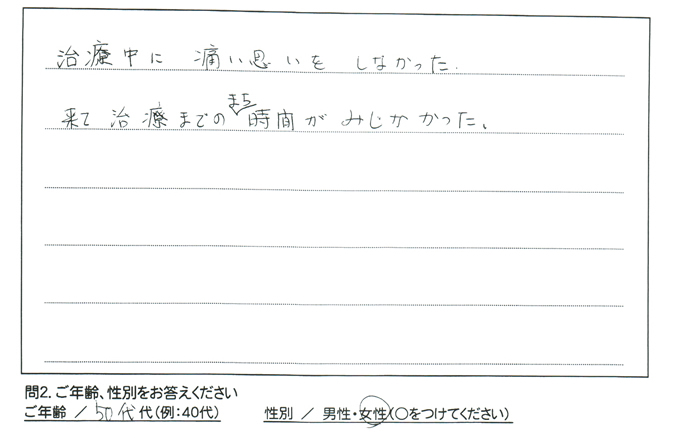 治療中に 痛い思いを しなかった.
来て 治療までの まち時間が みじかかった、
問2. ご年齢、性別をお答えください
ご年齢 / 50代 代(例:40代) 性別 / 男性・女性(○をつけてください)